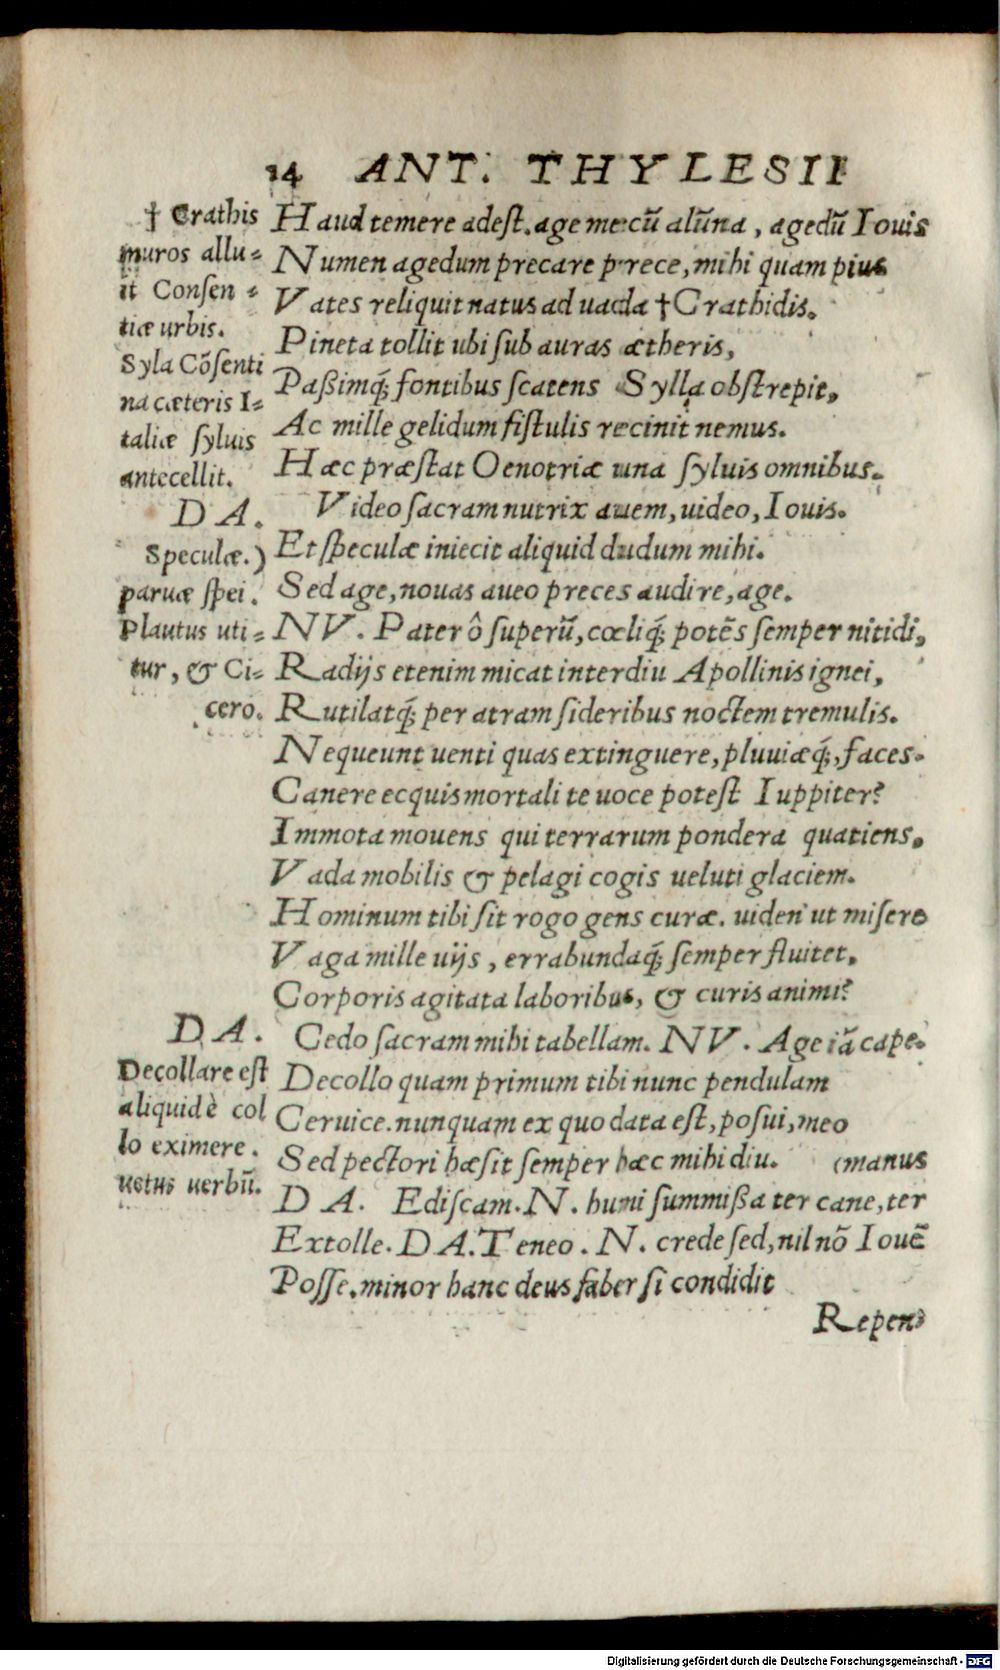 14 ANT. THYLESII
† Crathis
muros allu-
it Consen-
tiæ urbis.
Syla Cõsenti
na cæteris I-
taliæ syluis
antecellit.
DA.
Speculæ.)
paruæ spei.
Plautus uti-
tur, & Ci-
cero.
Haud temere adest. age mecũ alũna, agedũ Iouis
Numen agedum precare prece, mihi quam pius
Vates reliquit natus ad uada †Crathidis.
Pineta tollit ubi sub auras ætheris,
Paßimq; fontibus scatens Sylla obstrepit,
Ac mille gelidum fistulis recinit nemus.
Hæc præstat Oenotriæ una syluis omnibus.
Video sacram nutrix auem, uideo, Iouis.
Et speculæ iniecit aliquid dudum mihi.
Sed age, nouas aueo preces audire, age.
NV. Pater ô superũ, cœliq; potẽs semper nitidi,
Radijs etenim micat interdiu Apollinis ignei,
Rutilatq; per atram sideribus noctem tremulis.
Nequeunt uenti quas extinguere, pluuiæq;, faces.
Canere ecquis mortali te uoce potest Iuppiter?
Immota mouens qui terrarum pondera quatiens,
Vada mobilis & pelagi cogis ueluti glaciem.
Hominum tibi sit rogo gens curæ. uiden' ut misere
Vaga mille uijs, errabundaq; semper fluitet,
Corporis agitata laboribus, & curis animi?
DA. Cedo sacram mihi tabellam. NV. Age iã cape.
Decollare est
aliquid è col
lo eximere.
uetus uerbũ.
Decollo quam primum tibi nunc pendulam
Ceruice. nunquam ex quo data est, posui, meo
Sed pectori hæsit semper hæc mihi diu. (manus
DA. Ediscam. N. humi summißa ter cane, ter
Extolle. DA. Teneo. N. crede sed, nil nõ Iouẽ
Posse. minor hanc deus faber si condidit
Repen-
Digitalisierung gefördert durch die Deutsche Forschungsgemeinschaft - DFG